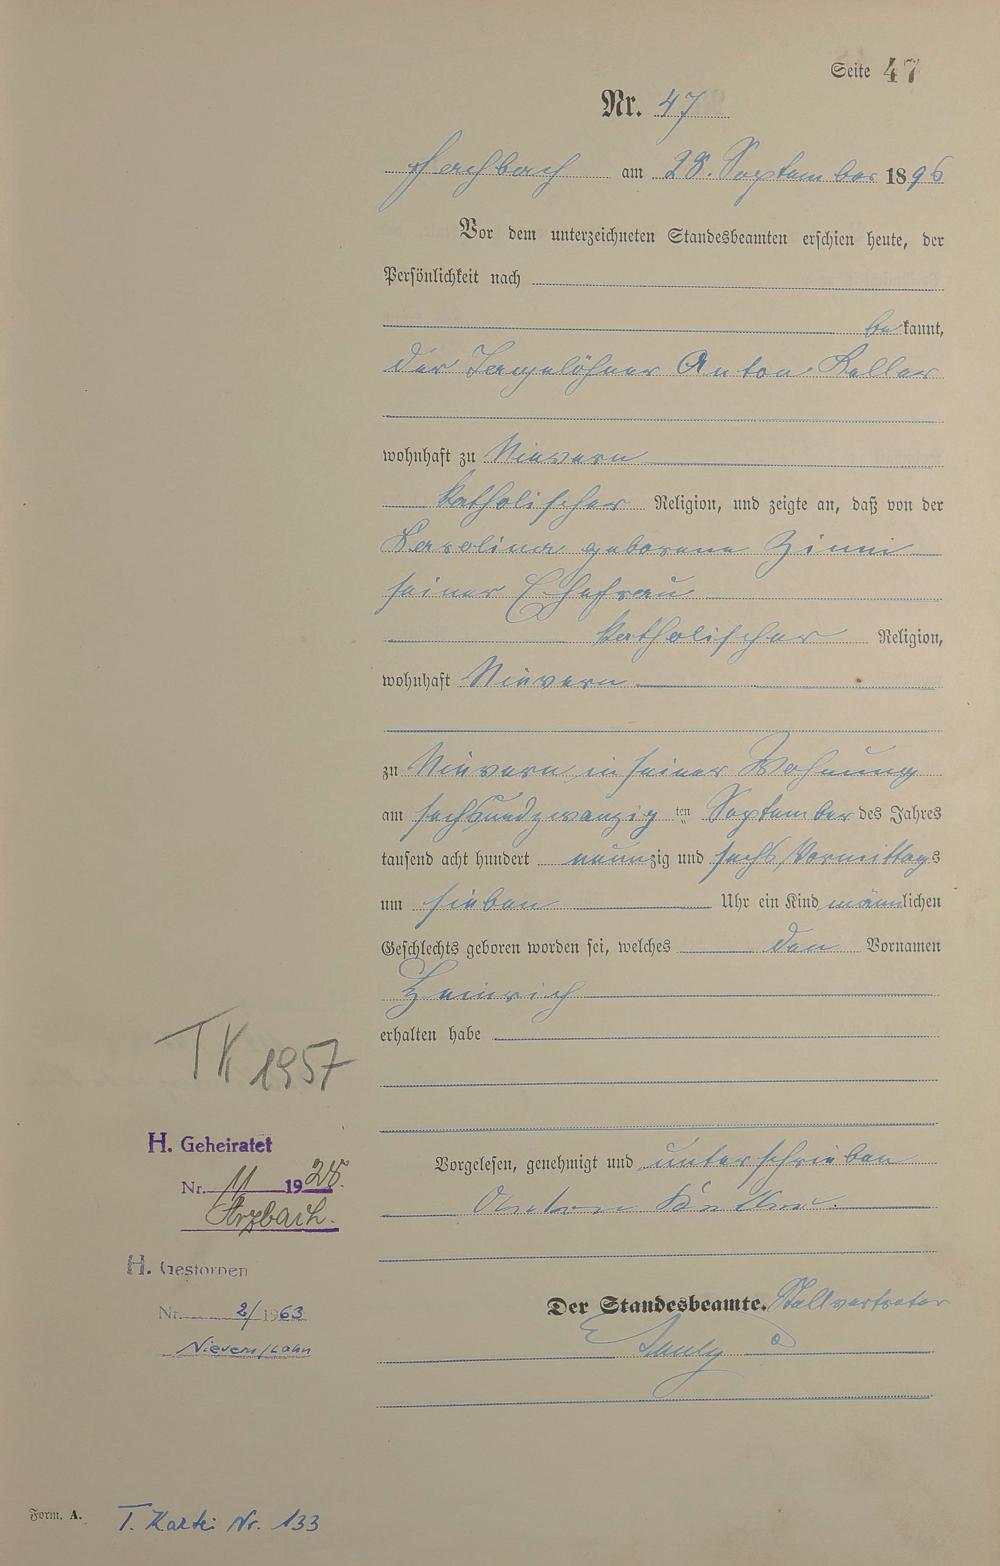 Seite 47
Nr. 47
Fachbach am 28. September 1896
Vor dem unterzeichneten Standesbeamten erschien heute, der
Persönlichkeit nach
bekannt,
der Tagelöhner Anton Keller
wohnhaft zu Nievern
katholischer Religion, und zeigte an, daß von der
Karolina geborene Zinni
seiner Ehefrau
katholischer Religion,
wohnhaft Nievern
zu Nievern in seiner Wohnung
am sechsundzwanzig ten September des Jahres
tausend acht hundert neunzig und sechs Vormittags
um sieben Uhr ein Kind männlichen
Geschlechts geboren worden sei, welches den Vornamen
Heinrich
erhalten habe
TK 1957
H. Geheiratet
Nr. 11 1928.
Arzbach.
Vorgelesen, genehmigt und unterschrieben
Anton Keller.
H. Gestorben
Nr. 2/1963
Nievern/Lahn
Der Standesbeamte. Stellvertreter
Pauly
Form. A.
T. Kartei Nr. 133